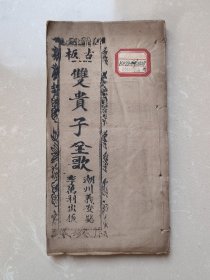 古板
雙貴子全歌
潮州義安路
李萬利出版